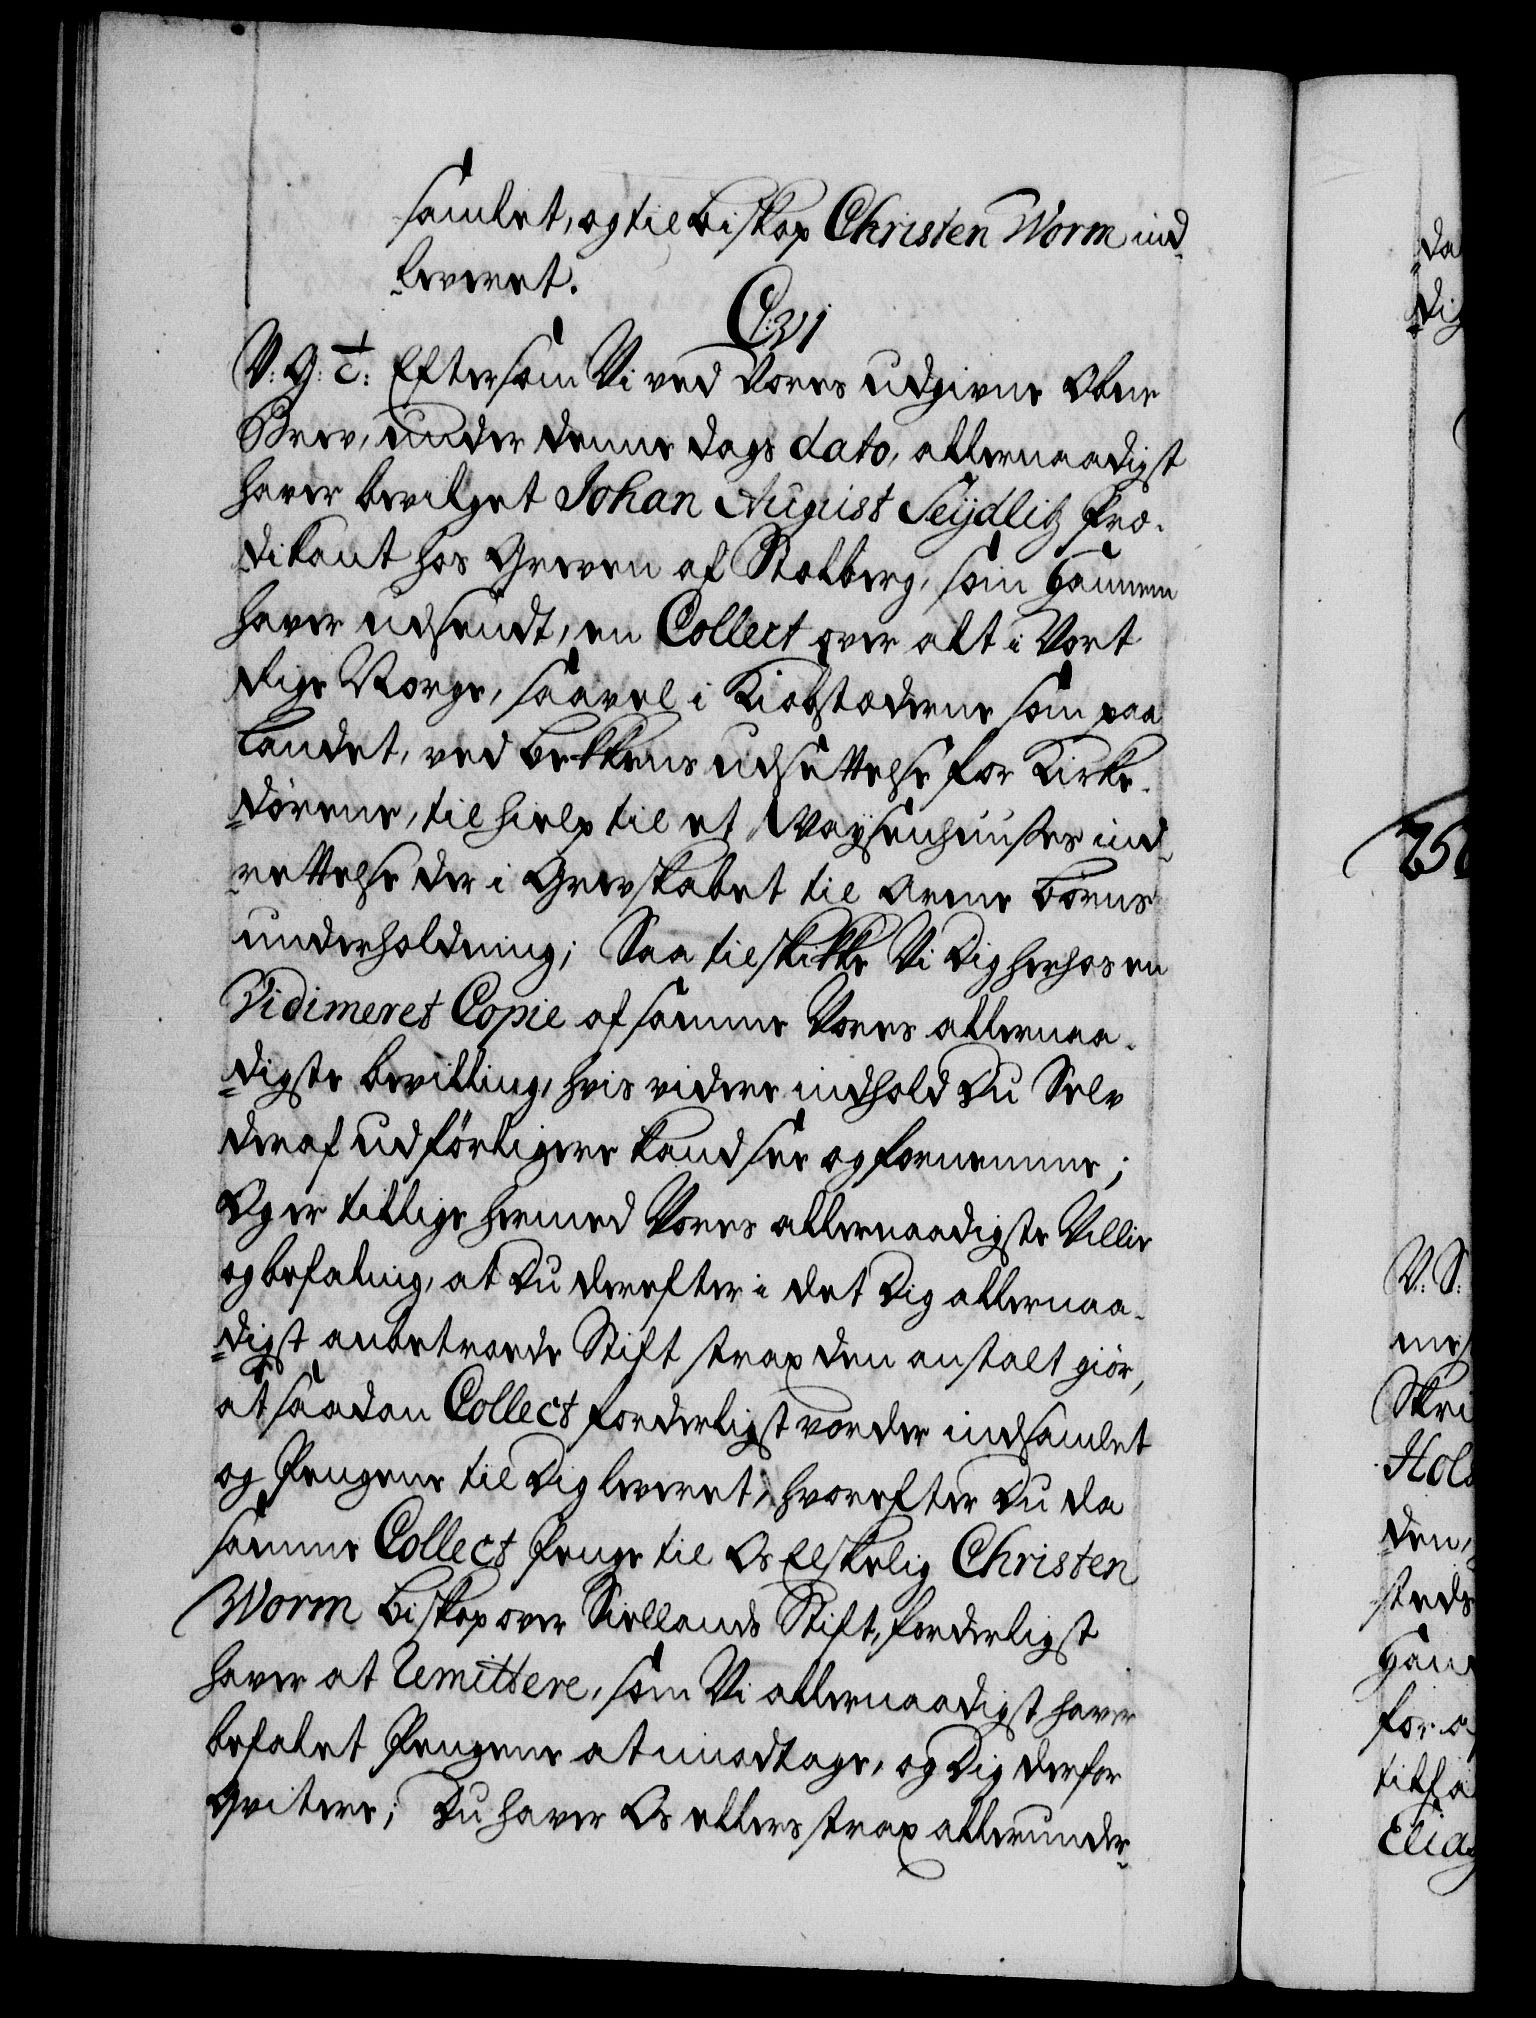 samlet, og til Biskop Christen Worm ind-
leveret.
C:VI
V: G: c: Eftersom Vi ved Vores udgivne Obne
Brev, under denne dags dato, allernaadigst
haver bevilget Johan August Seijdlitz Præ-
dikant hos Greven af Stolberg, som hannem
haver udsendt, en Collect over alt i Vort
Rige Norge, saavel i Kiøbstæderne som paa
Landet, ved Bekkens udsettelse for Kirke-
dørene, til hielp til et Waysenhuuses ind-
rettelse der i Grevskabet til Arme Børns
underholdning; Saa tilskikke Vi Dig herhos en
Vidimeret Copie af samme Vores allernaa-
digste bevilling, hvis videre indhold Du Selv
deraf udførligere kand see og fornemme;
Og er tillige hermed Vores allernaadigste Villie
og befaling, at Du derefter i det Dig allernaa-
digst anbetroede Stift strax den anstalt giør,
at saadan Collect forderligst vorder indsamlet
og Pengene til Dig leveret, hvorefter Du da
samme Collect Penge til Os Elskelig Christen
Worm Biskop over Siellands Stift, forderligst
haver at remittere, som Vi allernaadigst haver
befalet Pengene at imodtage, og Dig derfor
qvitere; Du haver Os ellers strax allerunder-
da
dig
V: S:
Skri
Hols
den,
steds
for
Elias